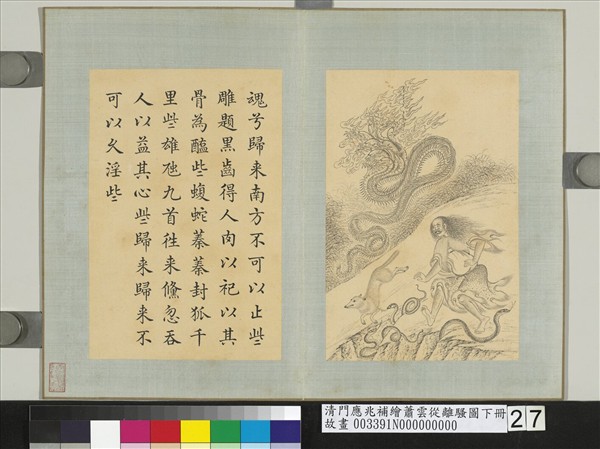 魂兮歸来南方不可以止些
雕題黒齒得人肉以祀以其
骨為醢些蝮蛇蓁蓁封狐千
里些雄虺九首徃来儵忽吞
人以益其心些歸来歸来不
可以久淫些
清門應兆補繪蕭雲從離騷圖下冊
故畫 003391N000000000
27